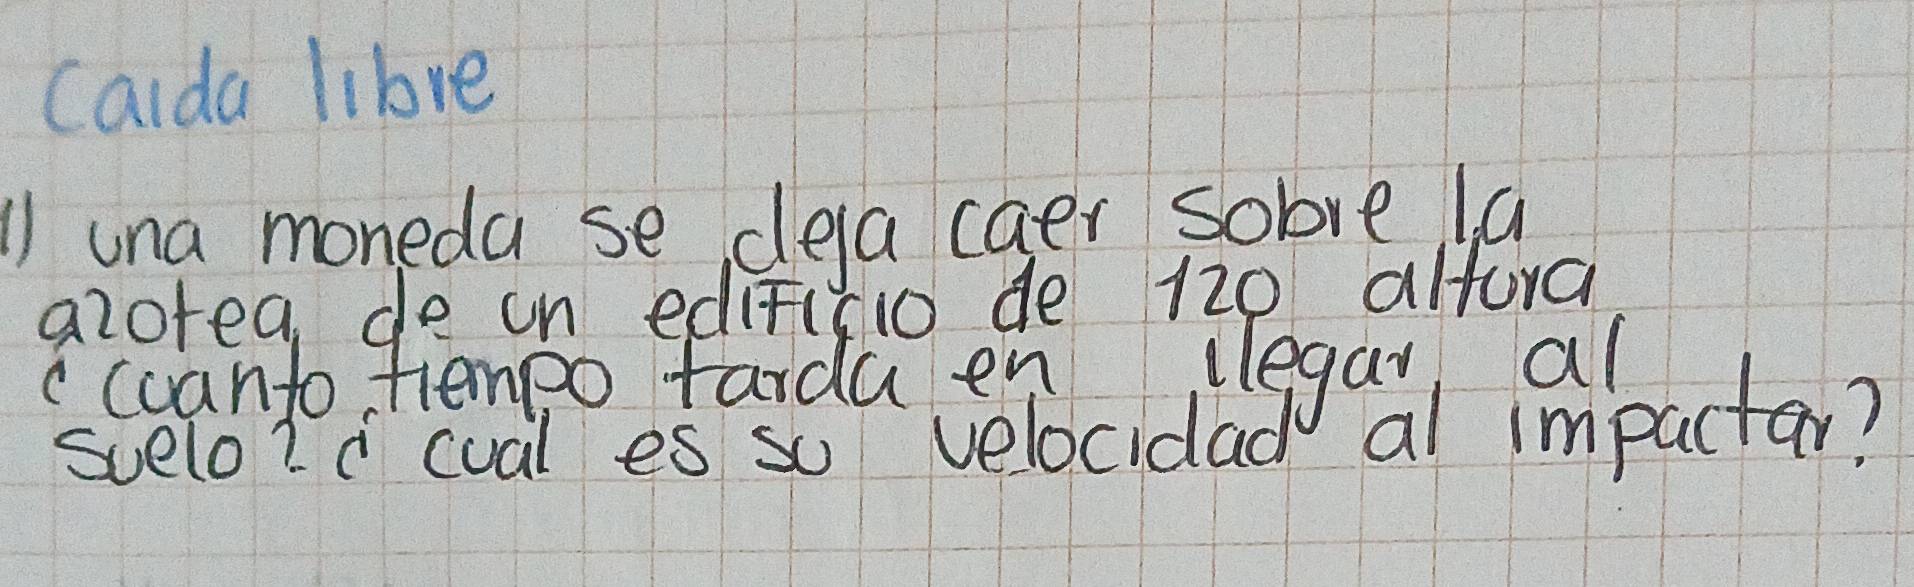 Caida libre
1) una moneda se deja caer sobre la
azotea de un edificio de 120 altura
¿cuanto tiempo tarda en llegar al
suelo? ¿cual es su velocidad al impactar?